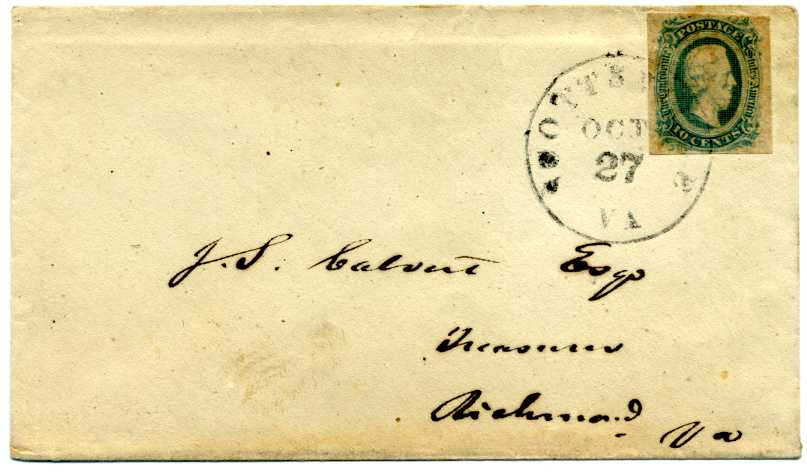 POSTAGE
The Confederate States of America
10 CENTS
OCT
27
VA
J. S. Calvert Esqr
Treasurer
Richmond
Va